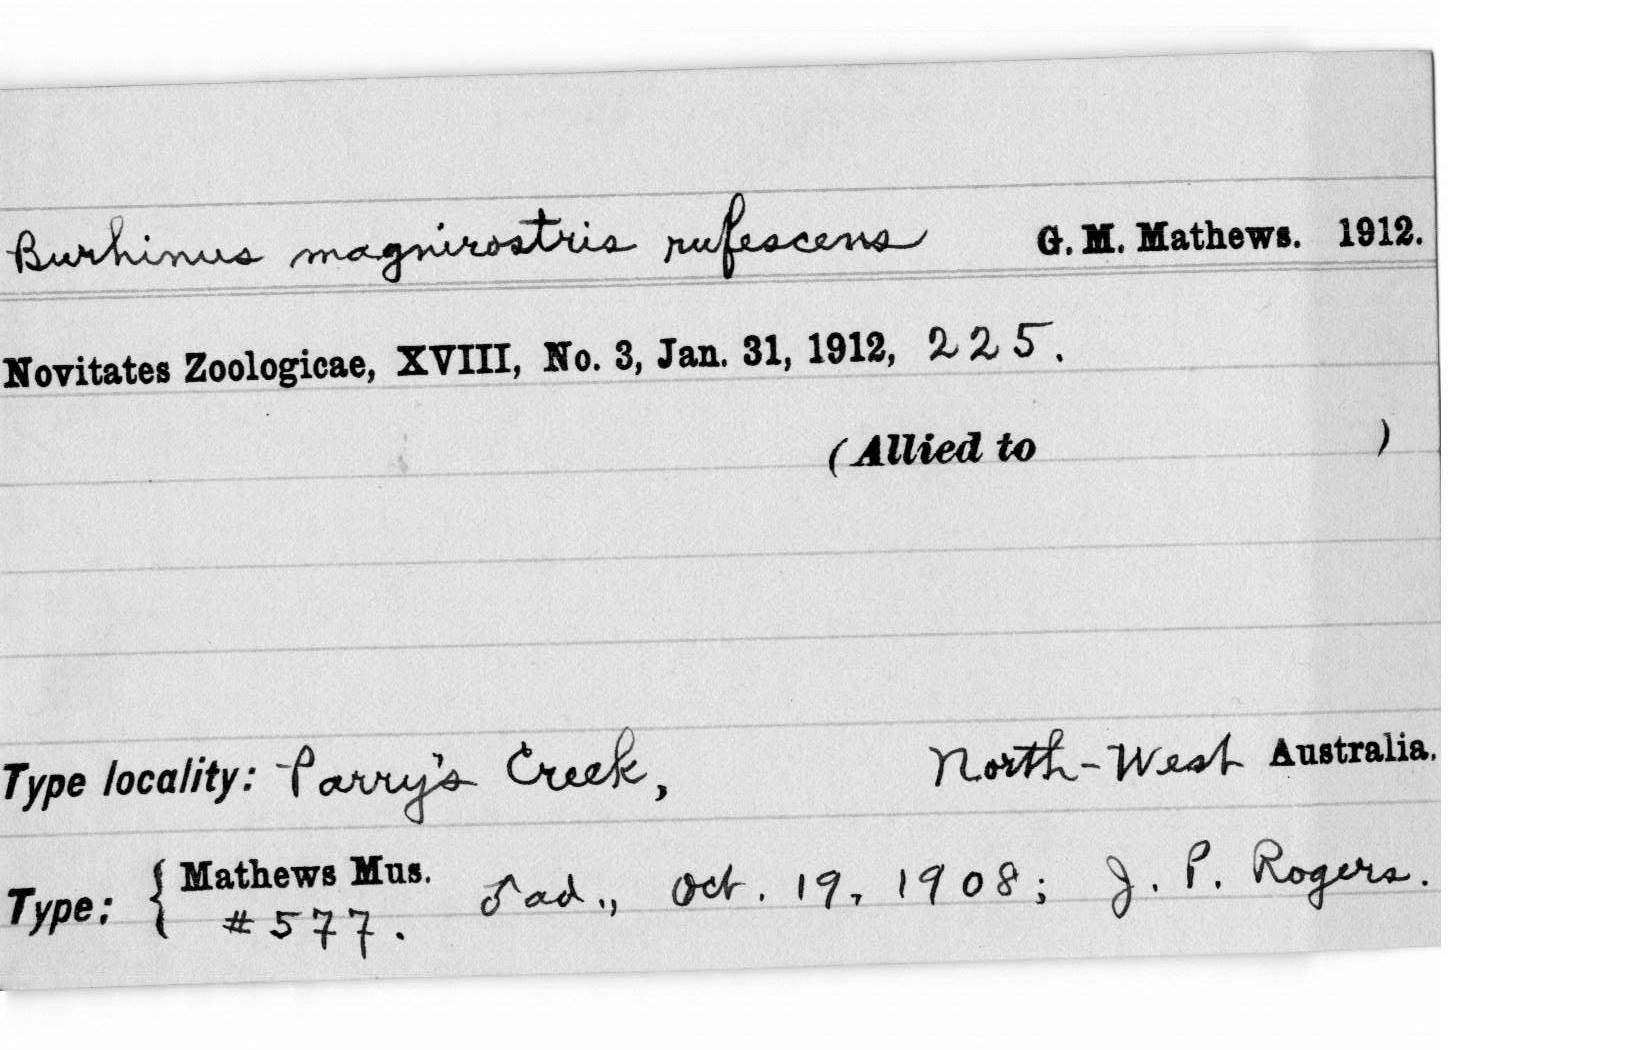 Burhinus magnirostris rufescens G. M. Mathews. 1912.
Novitates Zoologicae, XVIII, No. 3, Jan. 31, 1912, 225.
(Allied to )
Type locality: Parry's Creek, North-West Australia.
Type: { Mathews Mus. ♂ ad., Oct. 19, 1908; J. P. Rogers.
#577.